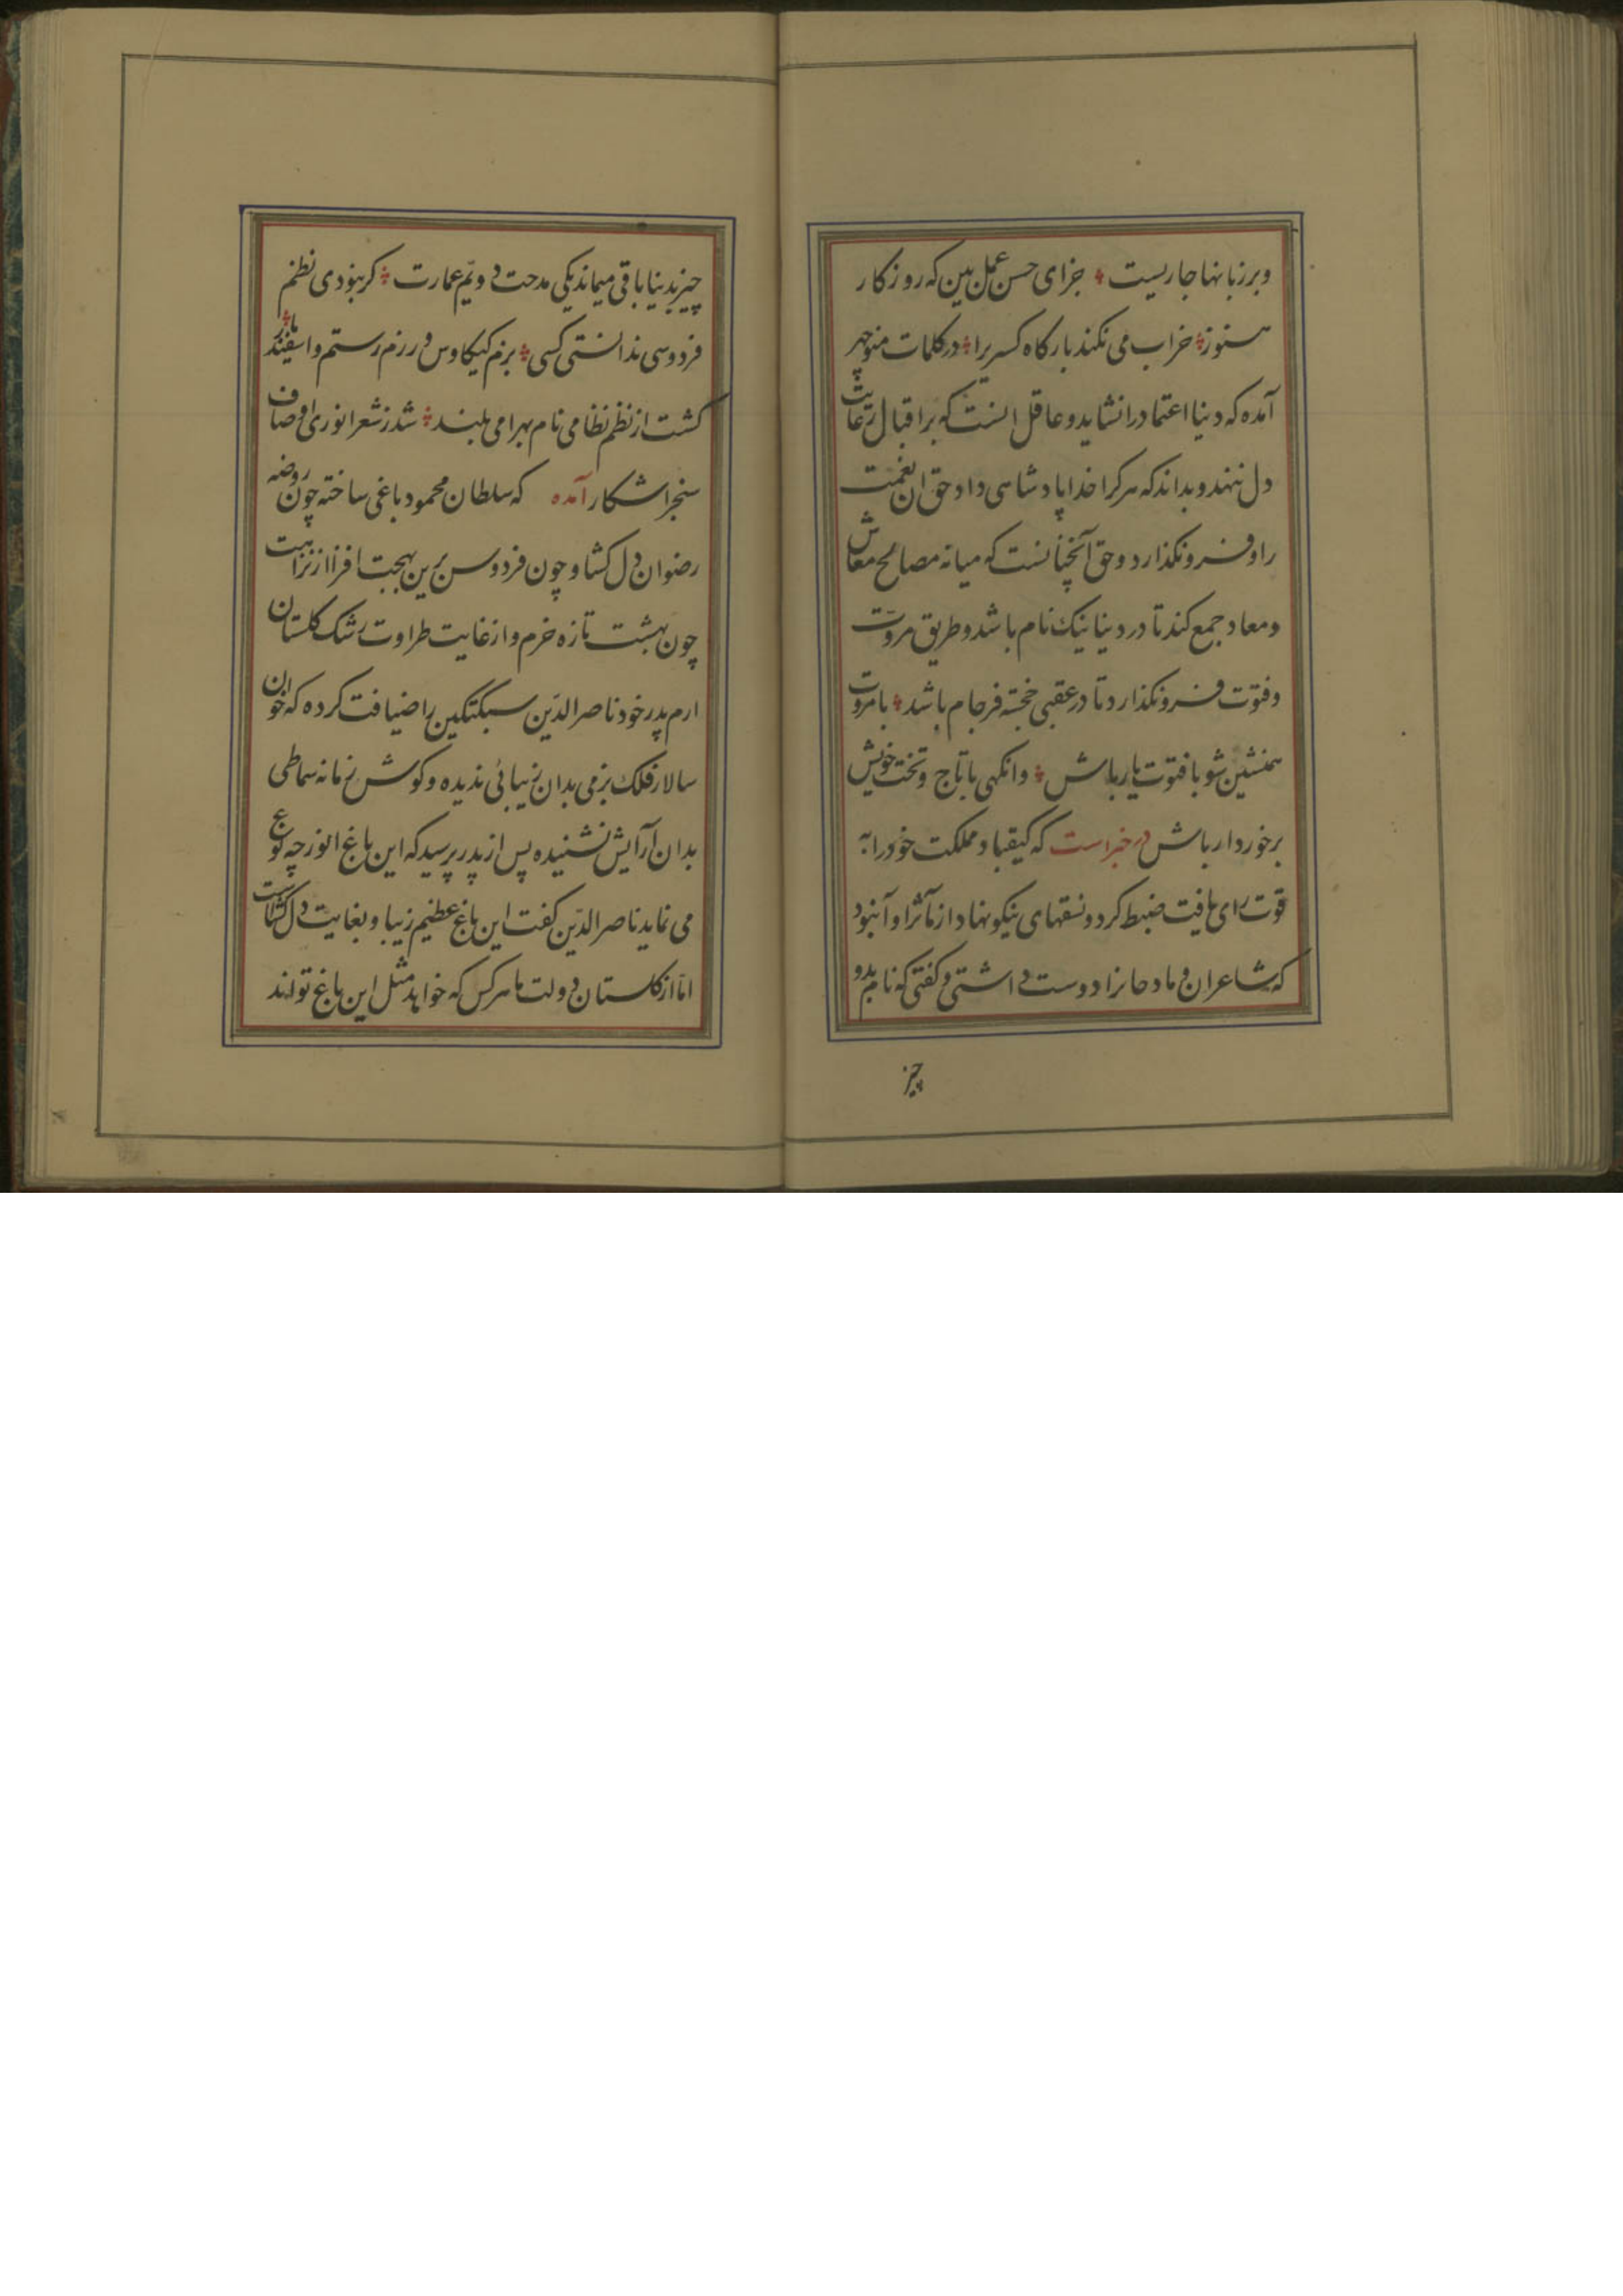 وبرزبانها جاریست ؞ جزای حسن عمل بین که روزکار
هنوز ؞ خراب می نکند بارکاه کسریرا ؞ در کلمات منوچهر
آمده که دنیا اعتماد را نشاید و عاقل انست که بر اقبال
دل ننهد و بداند که هر کرا خدا پادشاهی داد حق ان نعمت
را فرو نکذارد و حق آنچنانست که میانه مصالح معاش
ومعاد جمع کند تا در دنیا نیک نام باشد و طریق مروت
وفتوت فرو نکذارد تا در عقبی خجسته فرجام باشد ؞ با مروت
همنشین شو با فتوت یار باش ؞ وانکهی با تاج و تخت خویش
برخوردار باش در خبر است که کیقباد مملکت خود را به
قوت رای یافت ضبط کرد و نسقهای نیکو نهاد از مآثر او آن بود
که شاعران و مادحانرا دوست داشتی و کفتی که نام بدو
چیز
چیز بدنیا باقی میماند یکی مدحت دویم عمارت ؞ کر نبودی نظم
فردوسی ندانستی کسی ؞ بزم کیکاوس و رزم رستم و اسفندیار ؞
کشت از نظم نظامی نام بهرامی بلند ؞ شد ز شعر انوری اوصاف
سنجر اشکار آمده که سلطان محمود باغی ساخته چون روضه
رضوان دل کشا و چون فردوس برین بهجت افزا از نزاهت
چون بهشت تازه خرم و از غایت طراوت رشک کلستان
ارم پدر خود ناصر الدین سبکتکین را ضیافت کرده که خوان
سالار فلک بزمی بدان زیبائی ندیده و کوش زمانه سماطی
بدان آرایش نشنیده پس از پدر پرسید که این باغ انور چه نوع
می نماید ناصر الدین کفت این باغ عظیم زیبا و بغایت دل کشاست
اما از کلستان دولت ما هر کس که خواهد مثل این باغ تواند